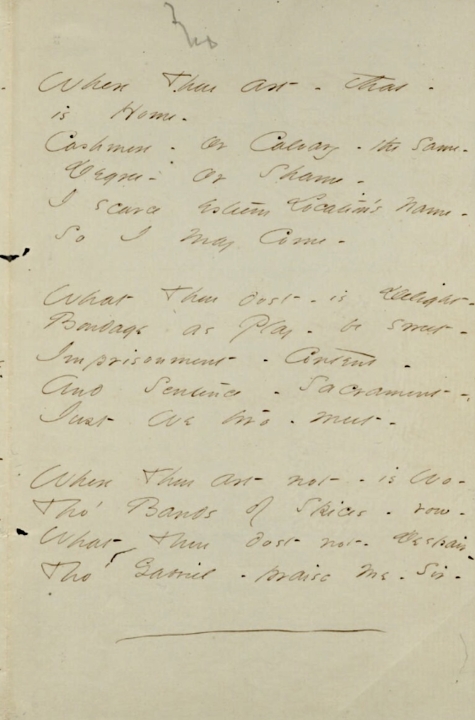 Where Thou art - that -
is Home -
Cashmere - or Calvary - the same -
Degree - or Shame -
I scarce esteem Location's Name -
So I may Come -
What Thou dost - is Delight -
Bondage as Play - be sweet -
Imprisonment - Content -
And Sentence - Sacrament -
Just We two - meet -
Where Thou art not - is Wo -
Tho' Bands of Spices - row -
What Thou dost not - Despair -
Tho' Gabriel - praise me - Sir -